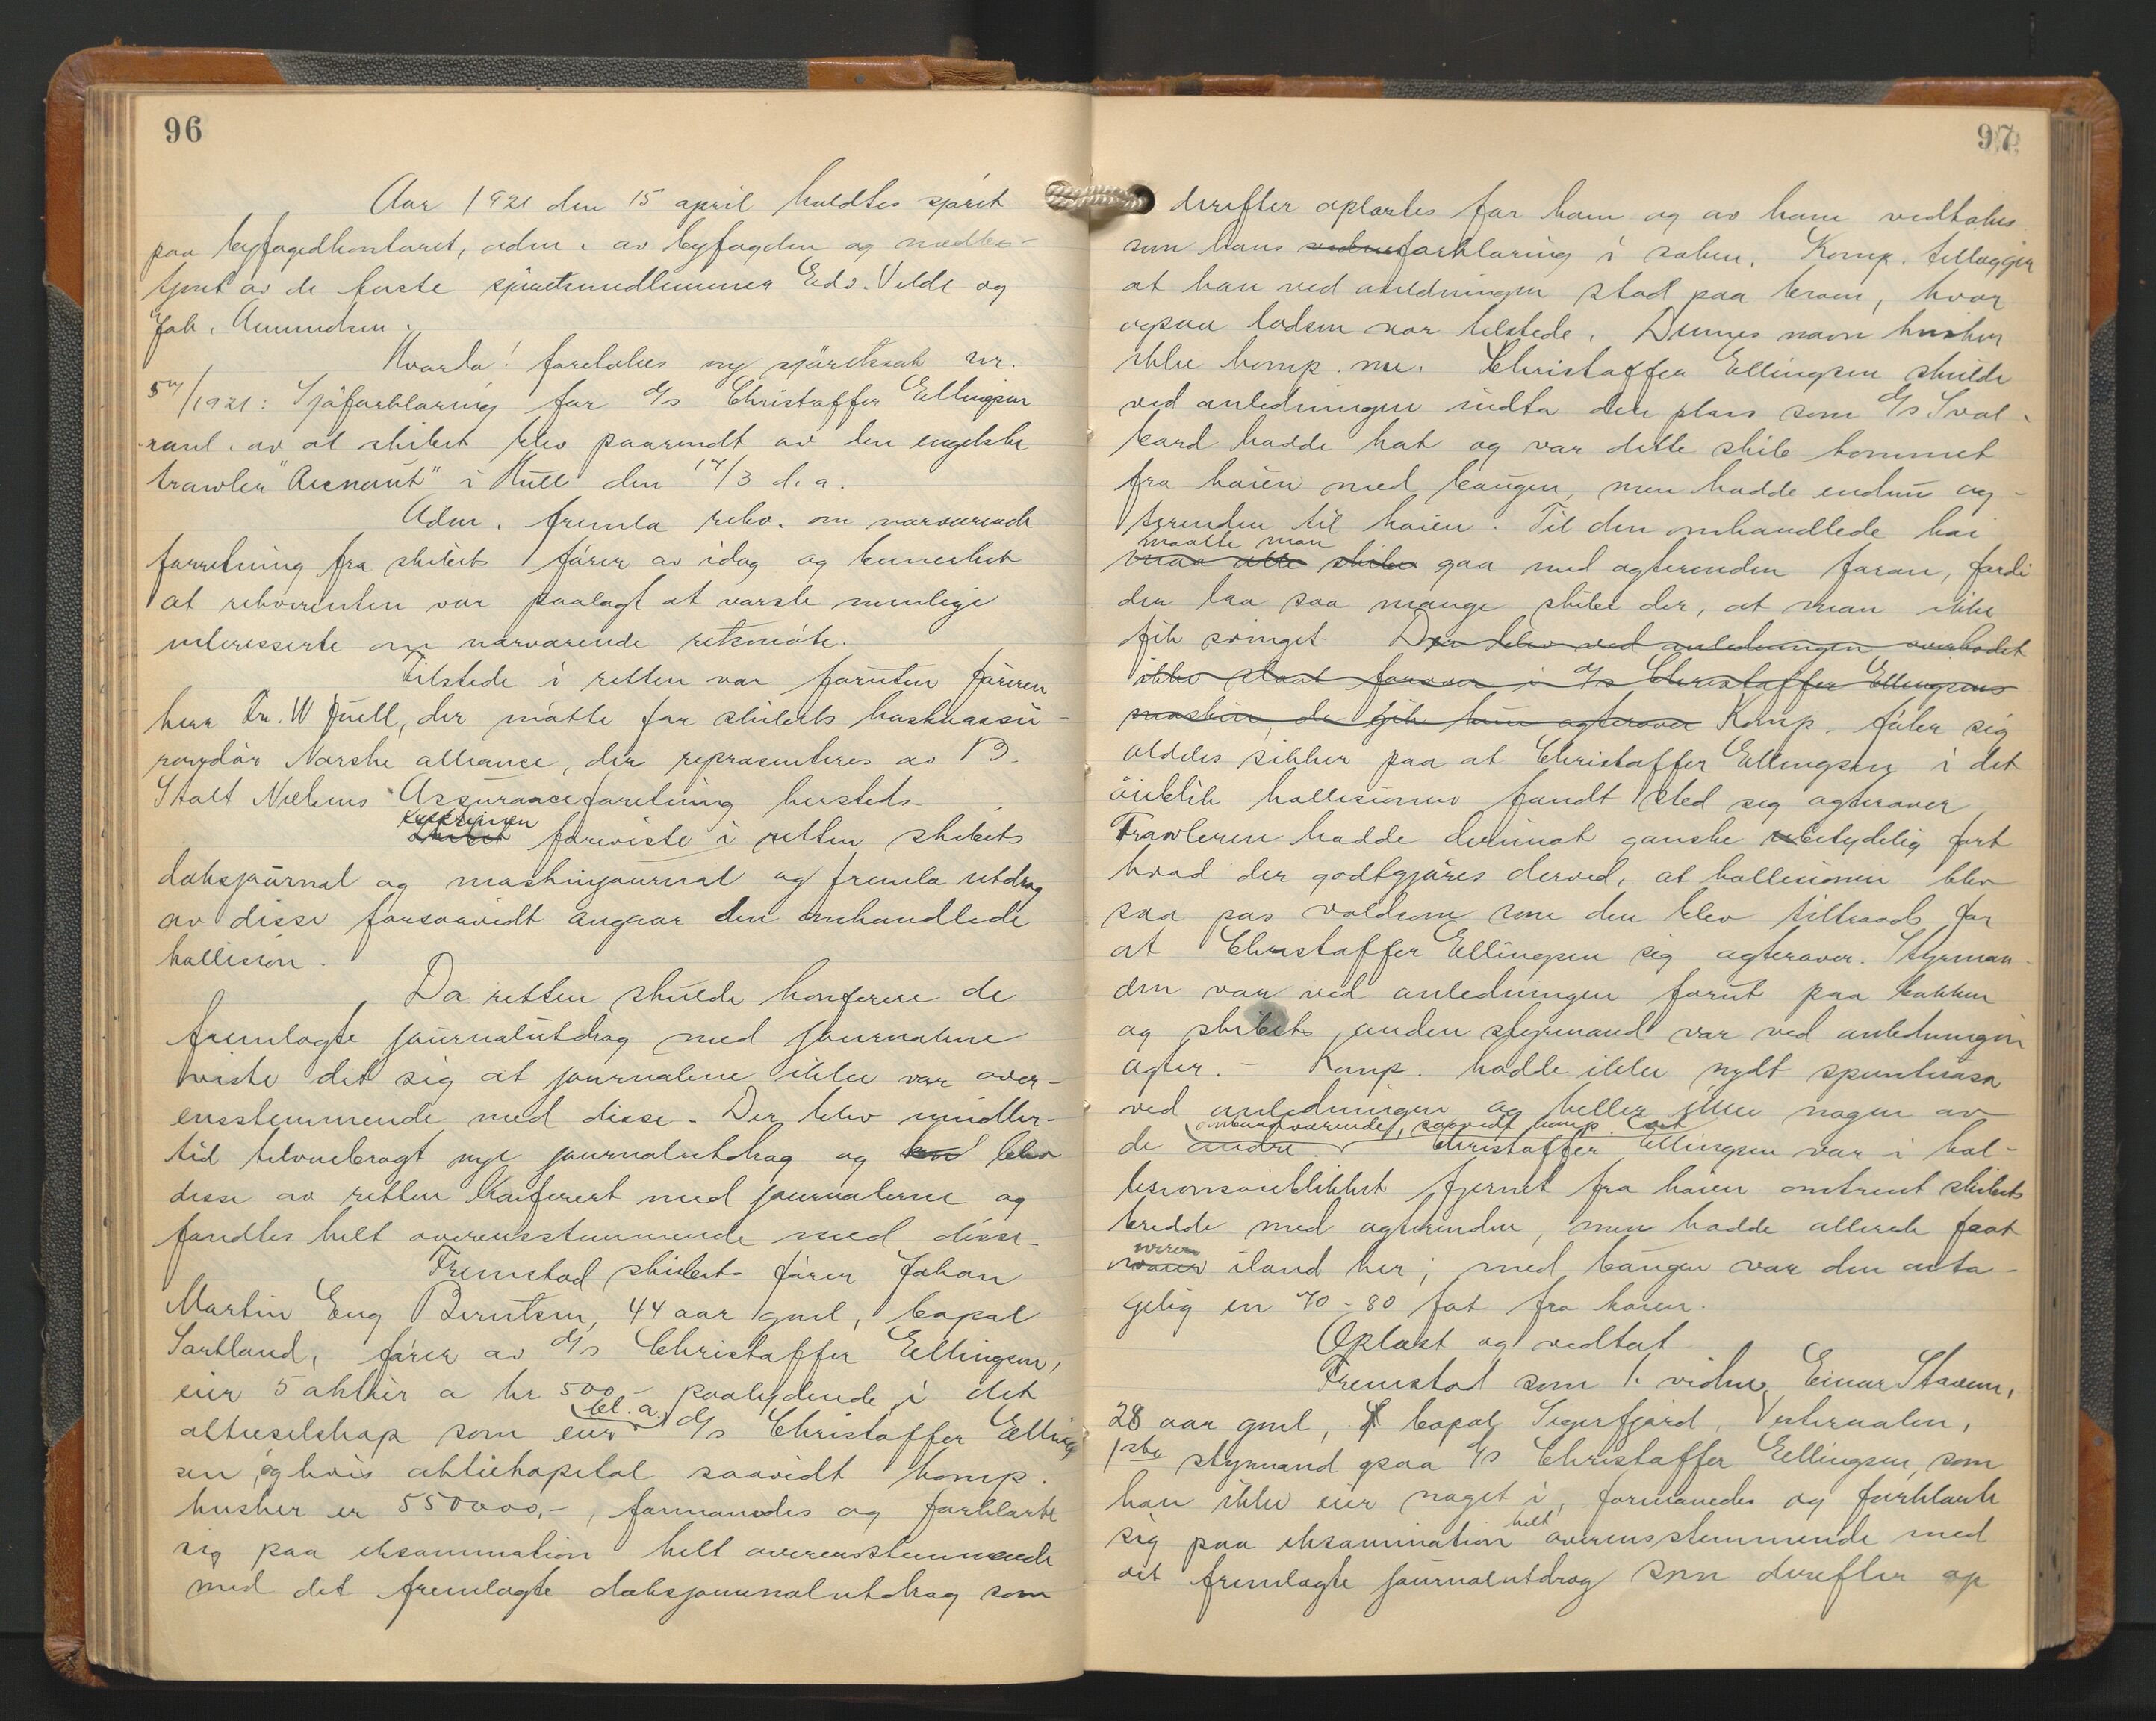 96
Aar 1921 den 15 april holdtes sjøret
paa byfogedkontoret, adm. av byfogden og medbe-
tjent av de faste sjøretsmedlemmer Edv. Velde og
Joh. Amundsen.
Hvorda! foretokes ny sjøretssak nr.
5/1921: Sjøforklaring for D/s Christoffer Ellingsen
anl. av at skibet blev paarendt av den engelske
trawler "Arcnaut" i Hull den 17/3 d.a.
Adm. fremla rekv. om nærværende
forretning fra skibets fører av idag og bemerket
at rekvirenten var paalagt at varsle mulige
interesserte om nærværende retsmøte.
Tilstede i retten var foruten føreren
herr Fr. W Juell, der møtte for skibets kaskoassu-
randør Norske alliance, der repræsenteres av B.
Stolt Nielsens Assuranceforretning hersteds.
Kapteinen
Skibet foreviste i retten skibets
dæksjournal og maskinjournal og fremla utdrag
av disse forsaavidt angaar den omhandlede
kollision.
Da retten skulde konferere de
fremlagte journalutdrag med journalene
viste det sig at journalene ikke var over-
ensstemmende med disse. Der blev imidler-
tid tilveiebragt nye journalutdrag og blev
disse av retten konferert med journalerne og
fandtes helt overensstemmende med disse.
Fremstod skibets fører Johan
Martin Eng Berntsen, 44 aar gml, bopæl
Sortland, fører av D/s Christoffer Ellingsen,
eier 5 aktier a kr 500,- paalydende i det
bl. a.
aktieselskap som eier D/s Christoffer Elling
sen og hvis aktiekapital saavidt komp.
husker er 550000,-, formanedes og forklarte
sig paa eksamination helt overensstemmende
med det fremlagte dæksjournalutdrag som
97
derefter oplæstes for ham og av ham vedtokes
som hans vidneforklaring i saken. Komp. tillægger
at han ved anledningen stod paa broen, hvor
ogsaa lodsen var tilstede. Dennes navn husker
ikke komp. nu. Christoffer Ellingsen skulde
ved anledningen indta den plass som D/s Sval-
bard hadde hat og var dette skib kommet
fra kaien med baugen, men hadde endnu ag-
terenden til kaien. Til den omhandlede kai
maatte man
maa alle skibe gaa med agterenden foran, fordi
der laa saa mange skibe der, at man ikke
fik svinget. Der blev ved anledningen overhodet
ikke slaat forover i D/s Christoffer Ellingsens
maskin, de gik kun agterover Komp. føler sig
aldeles sikker paa at Christoffer Ellingsen i det
øieblik kollisionen fandt sted seg agterover
Trawleren hadde derimot ganske ubetydelig fart
hvad der godtgjøres derved, at kollisionen blev
saa pas voldsom som den blev tiltrods for
at Christoffer Ellingsen sig agterover. Styrman-
den var ved anledningen forut paa bakken
og skibets anden styrmand var ved anledningen
agter. - Komp. hadde ikke nydt spirituosa
ved anledningen og heller ikke nogen av
ombordværende, saavidt komp. vet
de andre. Christoffer Ellingsen var i kol-
lisionsøieblikket fjernet fra kaien omtrent skibets
bredde med agterenden, men hadde allerede faat
wiren
waier iland her; med baugen var den anta-
gelig en 70-80 fot fra kaien.
Oplæst og vedtat
Fremstod som 1. vidne Einar Stavem,
28 aar gml, bopæl Sigerfjord, Vesteraalen,
1ste styrmand ogsaa D/s Christoffer Ellingsen, som
han ikke eier noget i, formanedes og forklarte
helt
sig paa eksamination overensstemmende med
det fremlagte journalutdrag som derefter op